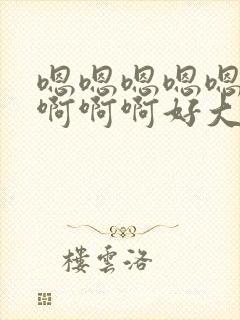 嗯嗯嗯嗯嗯
啊啊啊好大
楼雲洛